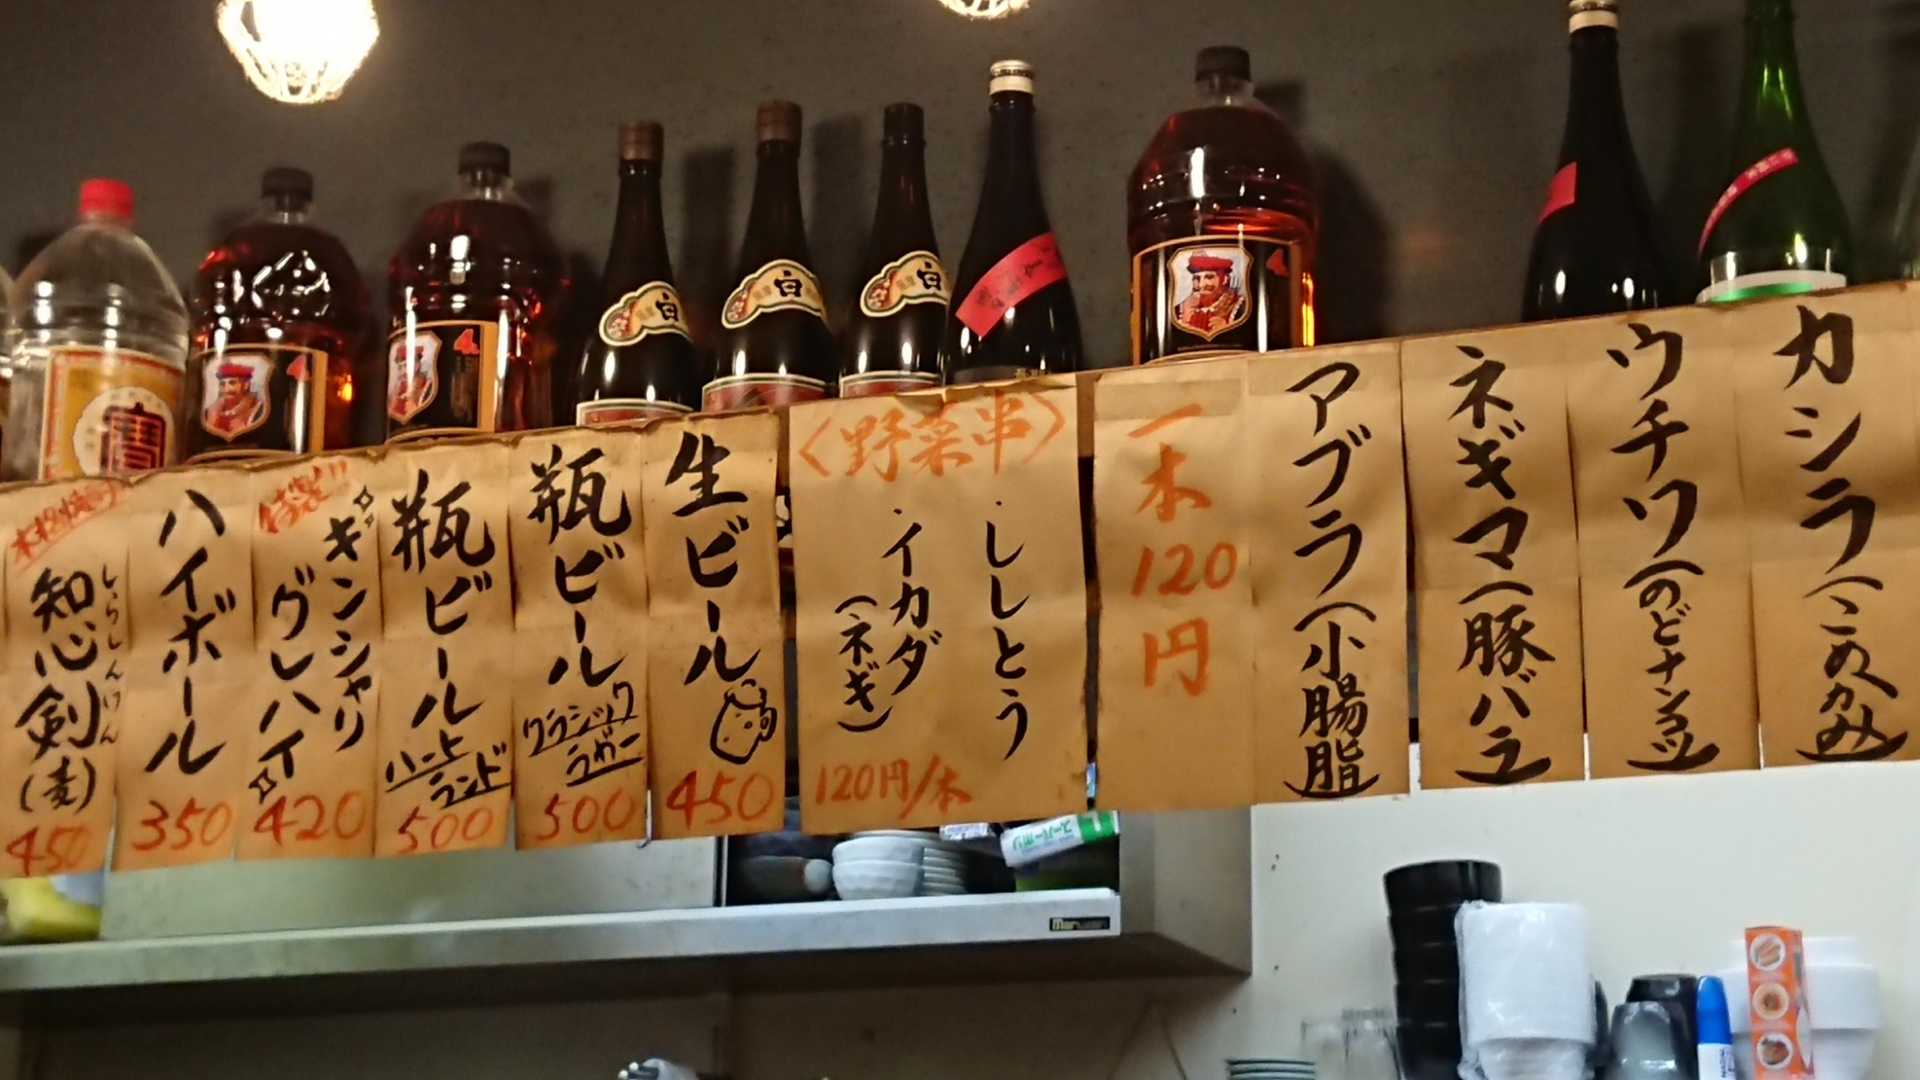 カシラ(こめかみ)
ウチワ(のどナンコツ)
ネギマ(豚バラ)
アブラ(小腸脂)
一本120円
〈野菜串〉
・ししとう
・イカダ
(ネギ)
120円/本
生ビール
450
瓶ビール
クラシック
ラガー
500
瓶ビール
ハート
ランド
500
特製!!
キンシャリ
グレハイ
420
ハイボール
350
本格焼
しらしんけん
知心剣(麦)
450
白
白
白
4
4
4